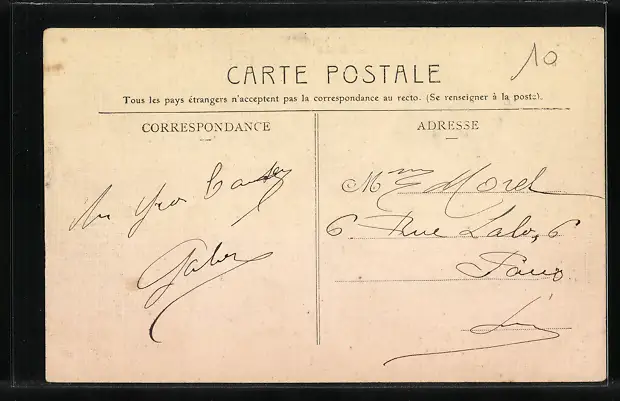 10
CARTE POSTALE
Tous les pays étrangers n'acceptent pas la correspondance au recto. (Se renseigner à la poste).
CORRESPONDANCE
ADRESSE
Un gros
Mme Morel
6 Rue Lalo, 6
Paris